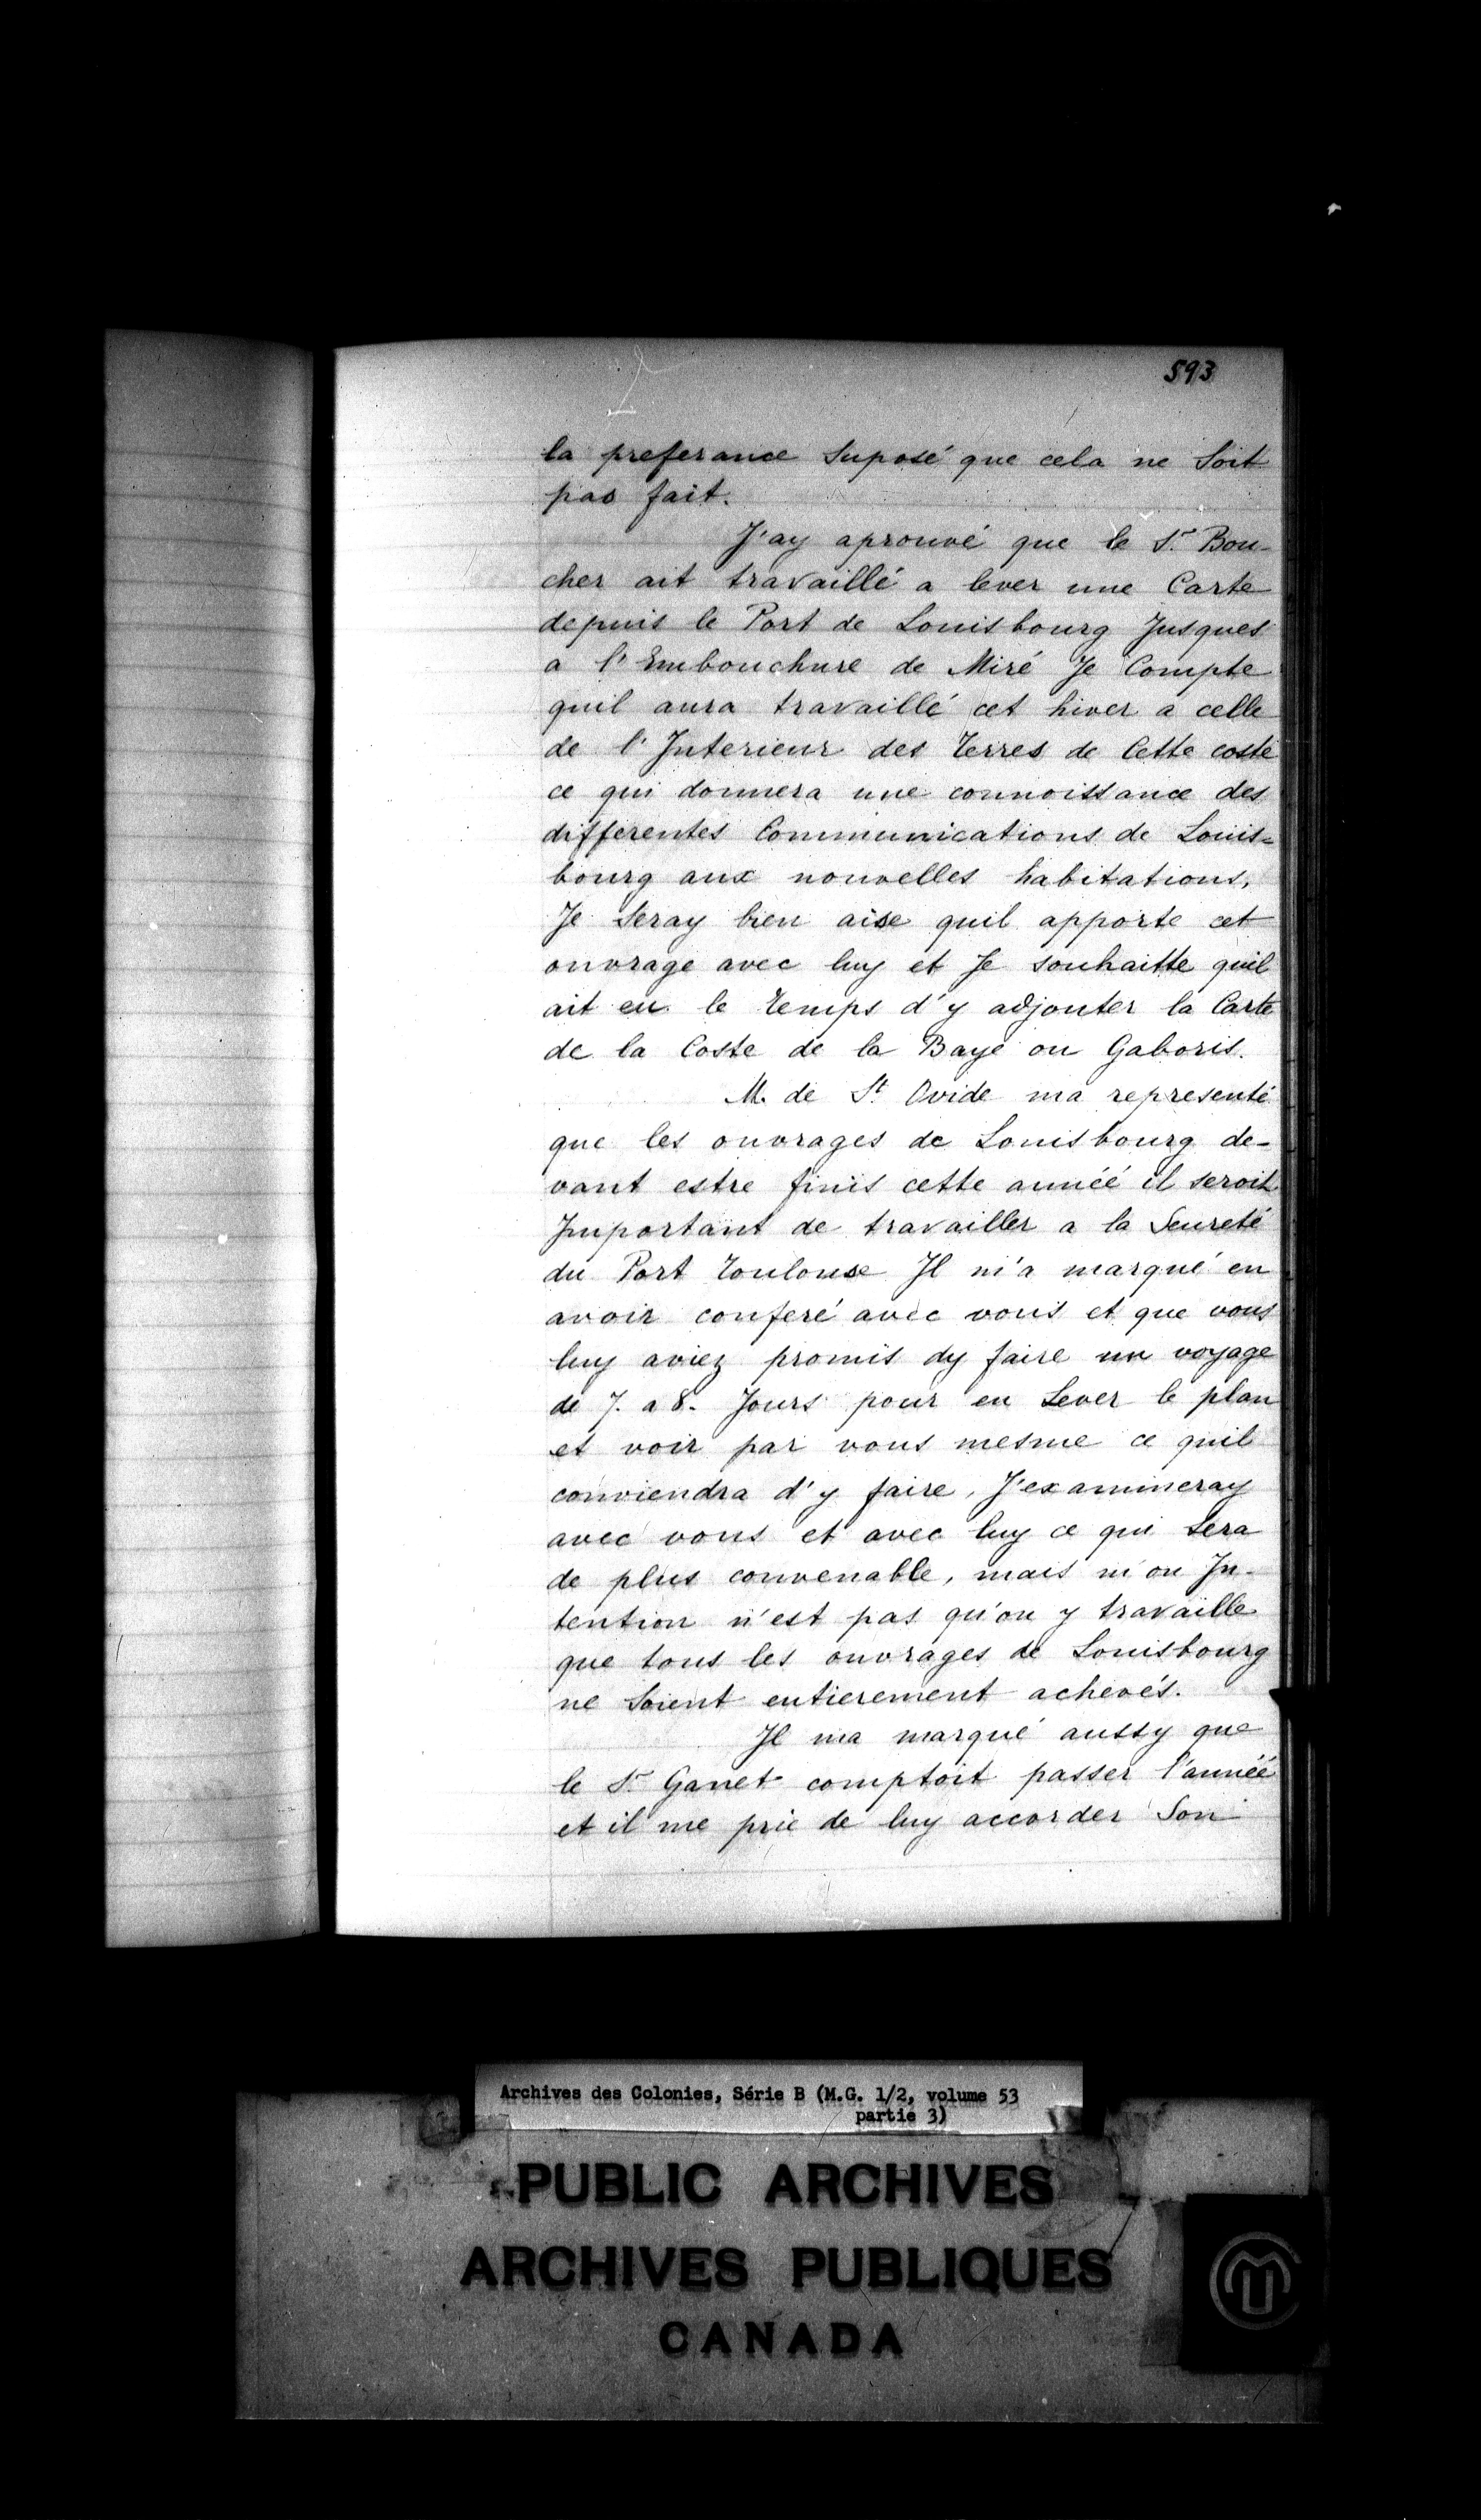 593
la preferance Suposé que cela ne Soit
pas fait.
J'ay aprouvé que le Sr. Bou-
cher ait travaillé a lever une Carte
depuis le Port de Louisbourg Jusques
a l'Embouchure de Miré Je Compte
quil aura travaillé cet hiver a celle
de l'Interieur des Terres de Cette coste
ce qui donnera une connoissance des
differentes Communications de Louis-
bourg aux nouvelles habitations,
Je Seray bien aise quil apporte cet
ouvrage avec luy et Je souhaitte quil
ait eu le temps d'y adjouter la Carte
de la Coste de la Baye ou Gaboris.
M. de St. Ovide ma representé
que les ouvrages de Louisbourg de-
vant estre finis cette annéé il seroit
Important de travailler a la Seureté
du Port Toulouse Il m'a marqué en
avoir conferé avec vous et que vous
luy aviez promis dy faire un voyage
de 7. a 8. Jours pour en Lever le plan
et voir par vous mesme ce quil
conviendra d'y faire, J'examineray
avec vous et avec luy ce qui Sera
de plus convenable, mais mon In-
tention n'est pas qu'on y travaille
que tous les ouvrages de Louisbourg
ne Soient entierement achevés.
Il ma marqué aussy que
le Sr Ganet comptoit passer l'annéé
et il me prie de luy accorder Son
Archives des Colonies, Série B (M.G. 1/2, volume 53
partie 3)
PUBLIC ARCHIVES
ARCHIVES PUBLIQUES
CANADA